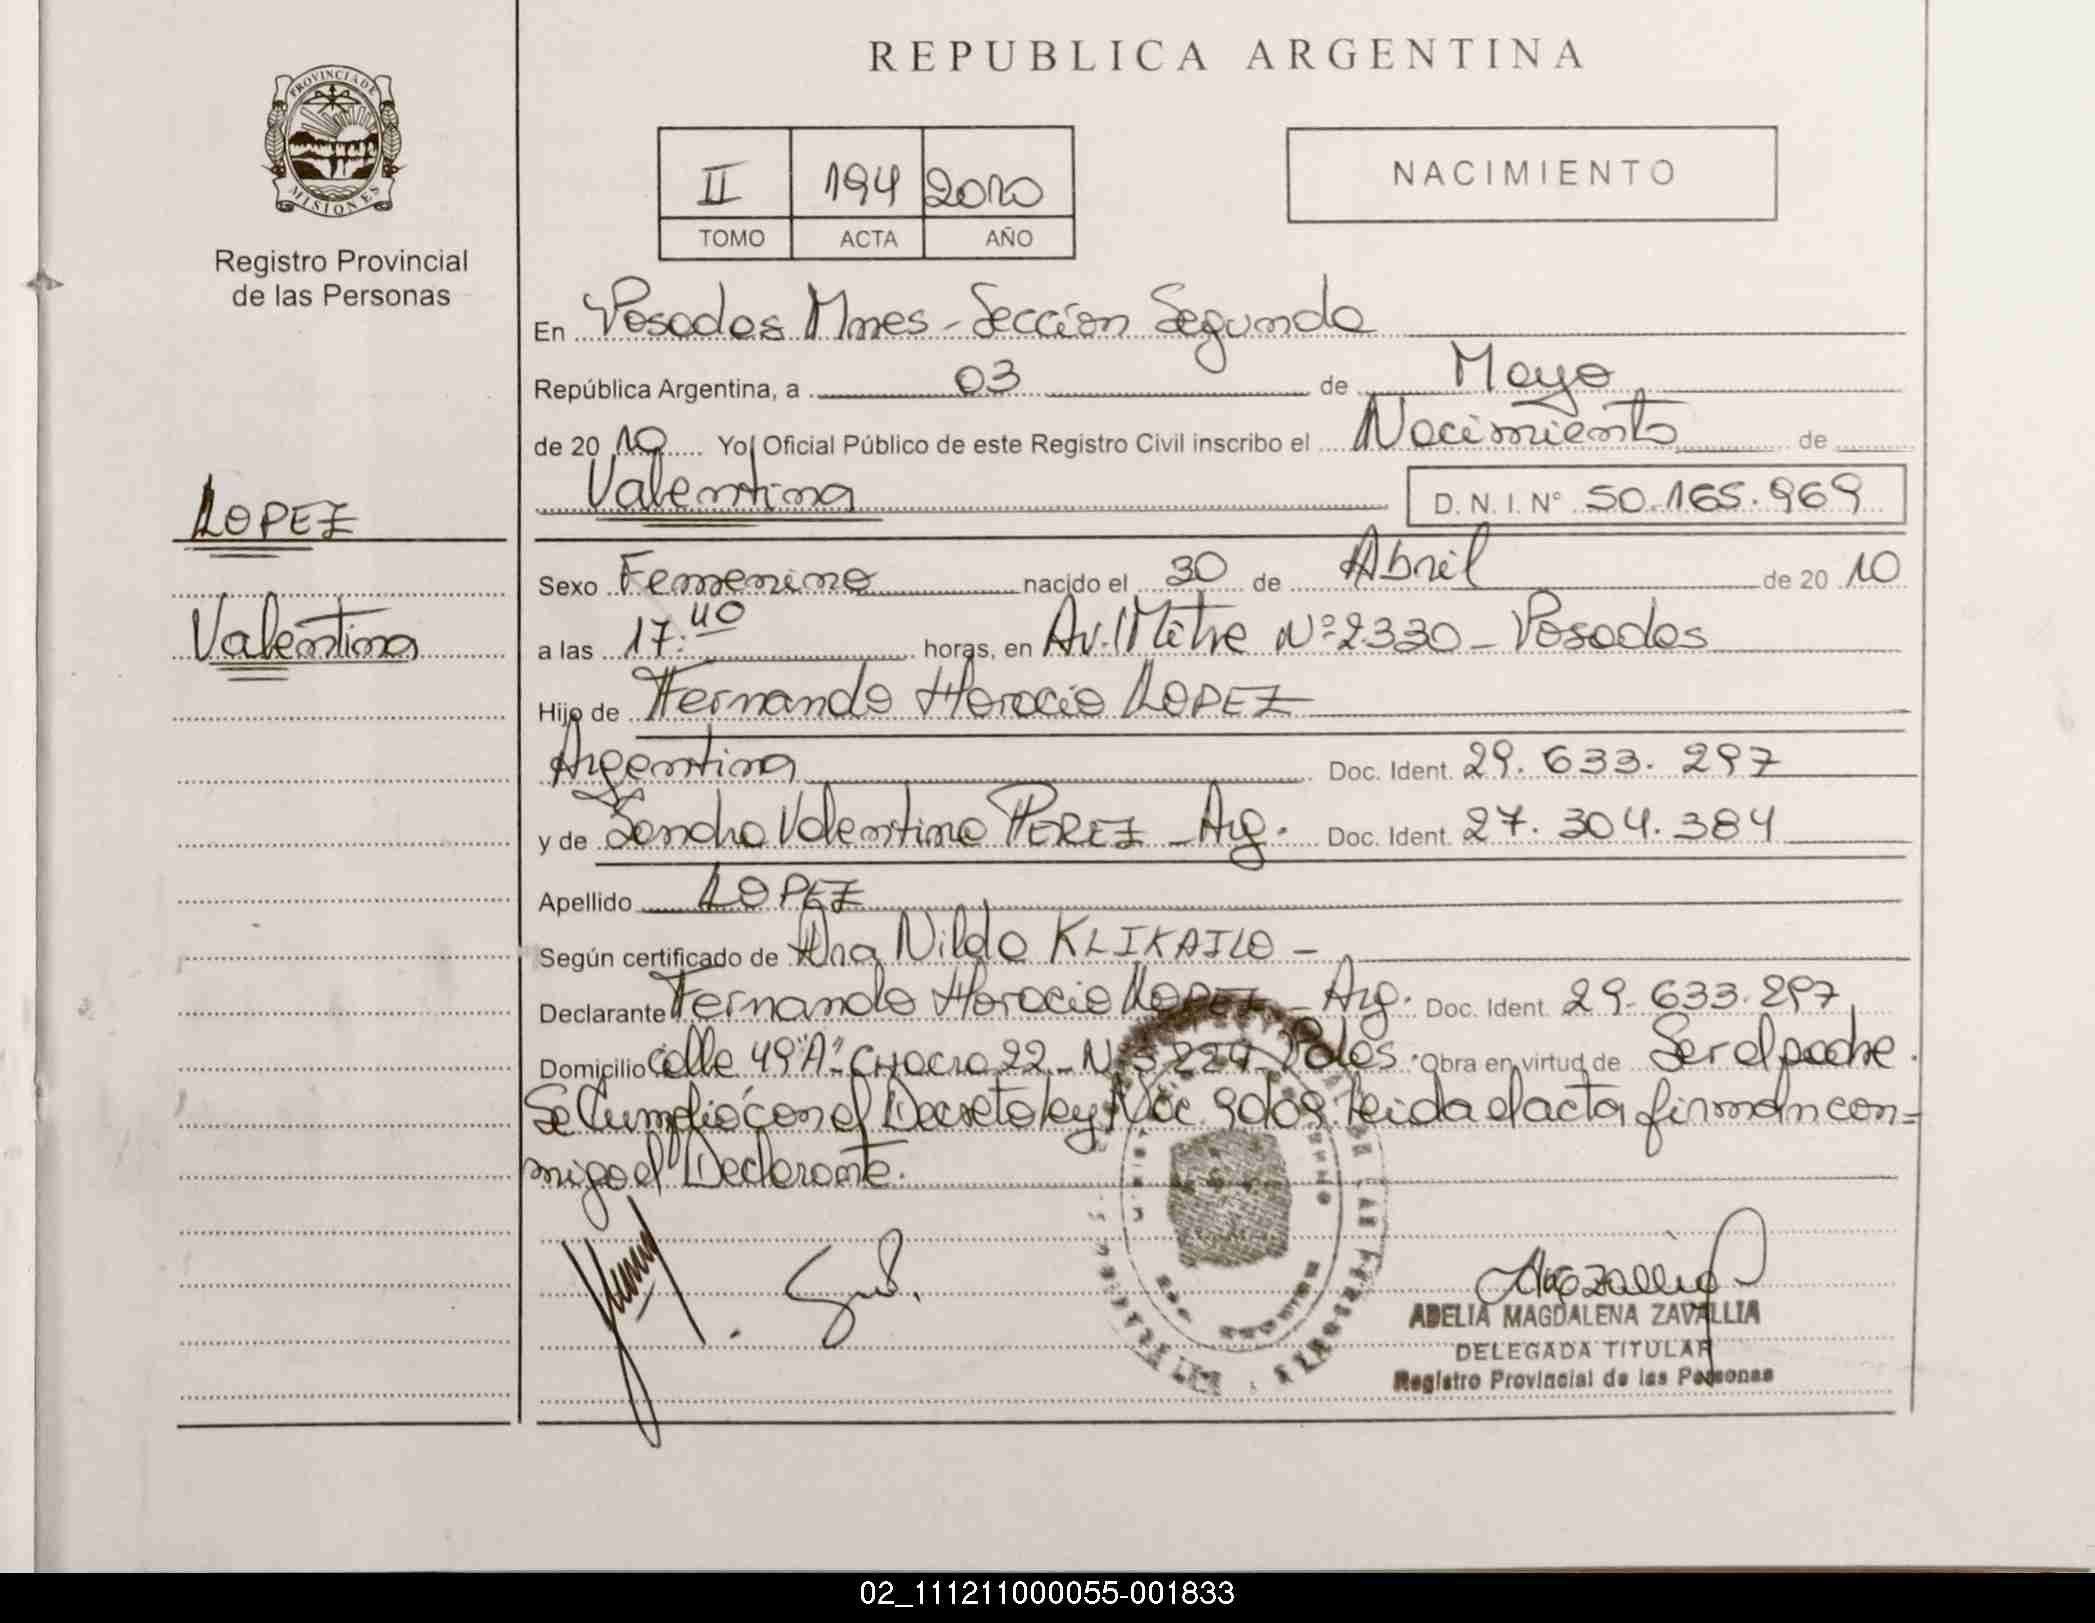 REPUBLICA ARGENTINA
PROVINCIA DE
MISIONES
Registro Provincial
de las Personas
II 194 2010
TOMO ACTA AÑO
NACIMIENTO
En Posadas Mnes - Sección Segunda
República Argentina, a 03 de Mayo
de 20 10 Yo, Oficial Público de este Registro Civil inscribo el Nacimiento de
Valentina D. N. I. N° 50.165.969
LOPEZ
Valentina
Sexo Femenino nacido el 30 de Abril de 20 10
a las 17:40 horas, en Av. Mitre Nº 2330 - Posadas
Hijo de Fernando Horacio LOPEZ
Argentina Doc. Ident. 29.633.297
y de Sandra Valentina PEREZ - Arg. Doc. Ident. 27.304.384
Apellido LOPEZ
Según certificado de Ana Nilda KLIKAILO -
Declarante Fernando Horacio LOPEZ - Arg. Doc. Ident. 29.633.297
Domicilio Calle 49 "A" - CHacra 22 - Nº 3224 Pdas. Obra en virtud de Ser el padre.
Se Cumplió con el Decreto ley Nac. 9009. Leida el acta firman con=
migo el Declarante.
ADELIA MAGDALENA ZAVALLIA
DELEGADA TITULAR
Registro Provincial de las Personas
02_111211000055-001833